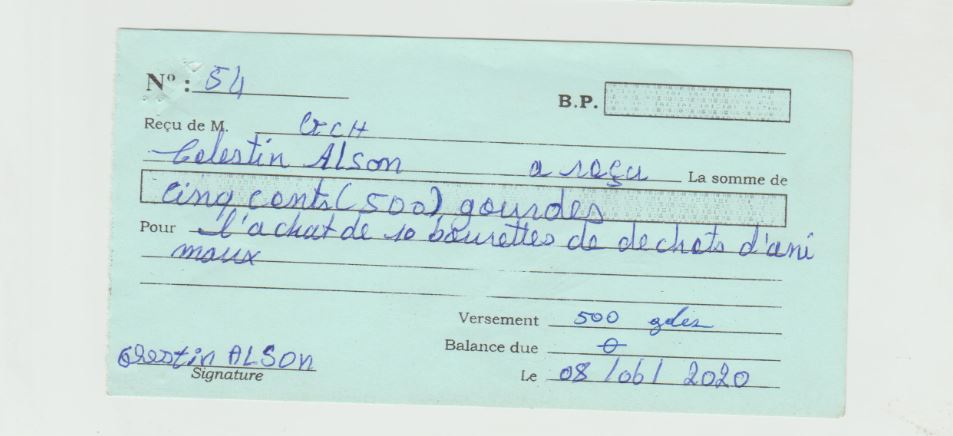 Nº : 54
B.P.
Reçu de M. GCH
Celestin Alson a reçu La somme de
cinq cents (500) gourdes
Pour l'achat de 10 bourettes de dechets d'ani
maux
Versement 500 gdes
Balance due 0
Celestin ALSON
Signature
Le 08/06/2020